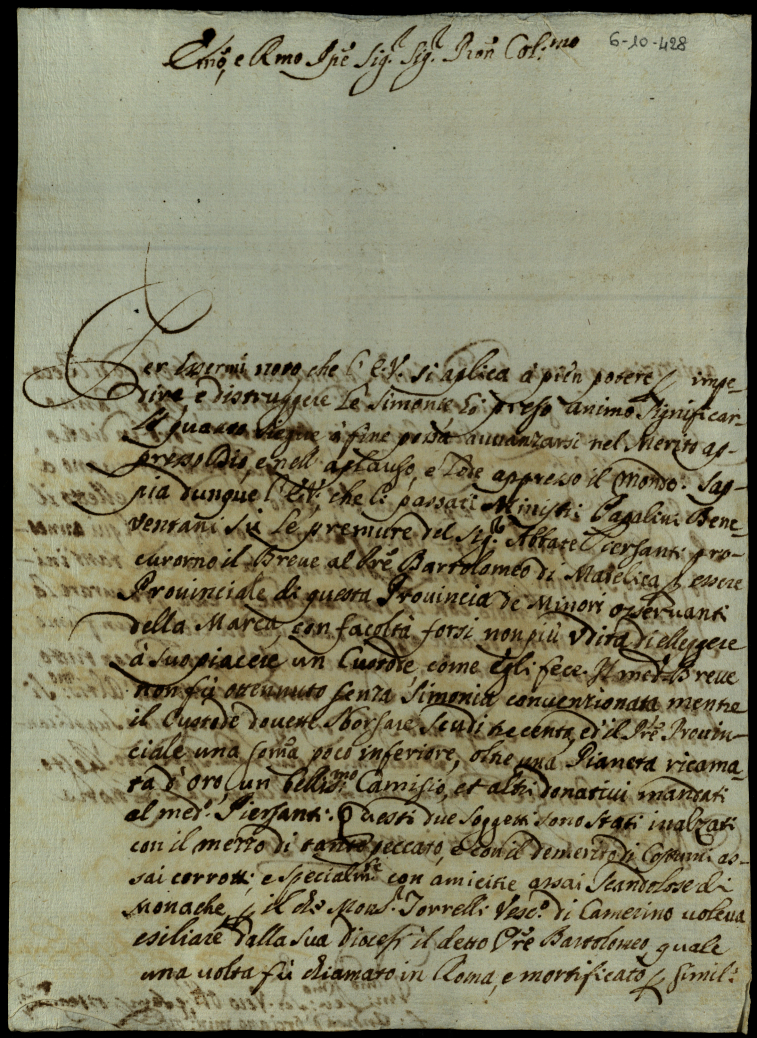 6-10-428
Emo, e Rmo Ppe Sigr. Sigr. Pron Col:mo
Per essermi noto che l'E.V. si aplica à pien potere p impe-
dire e distruggere le Simonie hò preso animo significar-
le quanto segue à fine possa avvanzarsi nel Merito ap-
presso Iddio, e nell'aplauso, e lode appresso il Mondo. Sap-
pia dunque l'E.V. che li passati Ministri Pagalini Bene-
ventani sù le premure del Sigr. Abbate Piersanti pro-
curorno il Breve al Pre Bartolomeo di Matelica p essere
Provinciale di questa Provincia de Minori osservanti
della Marca, con facoltà forsi non più udita di eleggere
à suo piacere un Custode, come egli fece. Il medo Breve
non fù ottenuto senza Simonia convenzionata mentre
il Custode dovette sborsare scudi trecento, ed il Pre Provin-
ciale una somã poco inferiore, oltre una Pianeta ricama-
ta d'oro, un bellissmo Camisio, et altri donativi mandati
al medo. Piersanti. Questi due soggetti sono stati inalzati
con il mezzo di tanto peccato, e con il demerito di Costumi as-
sai corrotti e specialmte con amicitie assai scandolose di
Monache, p il che Monsr. Torrelli Vesco. di Camerino voleva
esiliare dalla sua diocesi il detto Pre Bartolomeo quale
una volta fù chiamato in Roma, e mortificato p simili